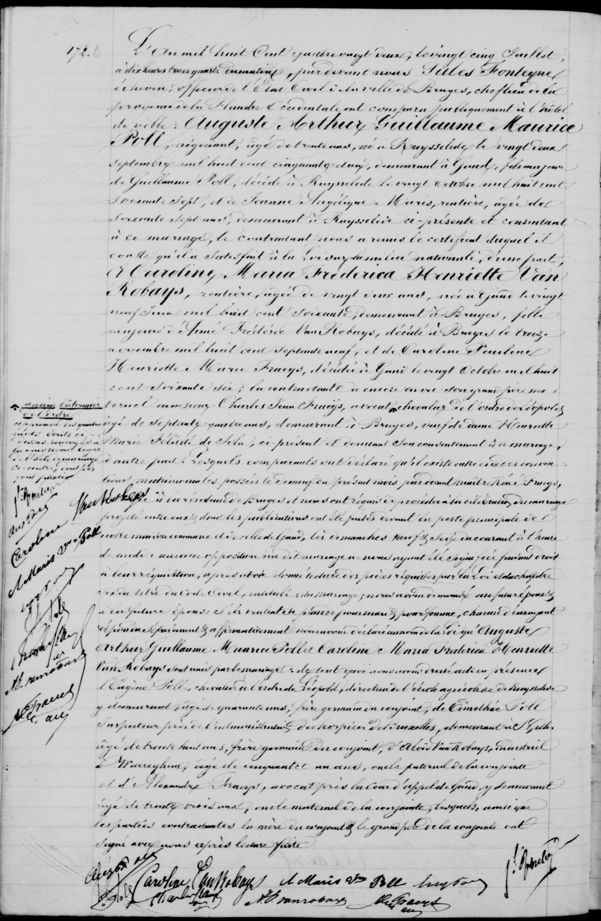 172.
L'An mil huit Cent quatre vingt deux, le vingt cinq Juillet,
à dix heures trois quarts du matin, par devant nous Jules Fonteyne
échevin, officier de l'Etat Civil de la ville de Bruges, chef lieu de la
province de la Flandre Occidentale, ont comparu publiquement à l'hôtel
de ville: Auguste Arthur Guillaume Maurice
Poll, négociant, âgé de trente ans, né à Ruysselede le vingt deux
septembre mil huit cent cinquante et un, demeurant à Gand, fils majeur
de Guillaume Poll, décédé à Ruysselede le vingt octobre mil huit cent
soixante sept, et de Jeanne Angélique Maris, rentière, âgée de
soixante sept ans, demeurant à Ruysselede ci-présente et consentant
à ce mariage, le contractant nous a remis le certificat duquel il
conste qu'il a satisfait à la Loi sur la milice nationale, d'une part,
Et Caroline Maria Fréderica Henriette Van
Robays, rentière, âgée de vingt deux ans, née à Gand le vingt
neuf Juin mil huit cent soixante, demeurant à Bruges, fille
majeure d'Aimé Frédéric Van Robays, décédé à Bruges le treize
novembre mil huit cent septante neuf, et de Caroline Pauline
Henriette Marie Fraeys, décédée à Gand le vingt Octobre mil huit
cent soixante six; la contractante a encore en vie son grand père ma
ternel monsieur Charles Jean Fraeys, avocat chevalier de l'ordre de Léopold
âgé de septante quatre ans, demeurant à Bruges, veuf de dame Henriette
Marie Félicité de Sola, ci-présent et donnant son consentement à ce mariage,
d'autre part: Lesquels comparants ont déclaré qu'il existe entre eux des conven
tions matrimoniales passées le du présent mois par devant maître René Fraeys,
à la résidence de Bruges et nous ont requis de procéder à la célébration du mariage
projeté entre eux, dont les publications ont été faites devant la porte principale de
notre maison commune et celle de Gand, les dimanches neuf et seize courant à l'heure
de midi: aucune opposition au dit mariage ne nous ayant été signifiée, faisant droit
à leur réquisition, après avoir donné lecture des pièces requises par la Loi et du chapitre
six du titre du Code Civil, intitulé: du mariage; nous avons demandé au futur époux et
à la future épouse s'ils veulent se prendre pour mari et pour femme, chacun d'eux ayant
répondu séparément et affirmativement nous avons déclaré au nom de la Loi qu'Auguste
Arthur Guillaume Maurice Poll et Caroline Maria Frederica Henriette
Van Robays sont unis par le mariage: de tout quoi nous avons dressé acte en présence
d'Eugène Poll, chevalier de l'ordre de Léopold, directeur de l'école agricole de Ruysselede
y demeurant, âgé de quarante ans, frère germain du conjoint, de Timothée Poll
inspecteur près de l'administration des hospices de Bruxelles, demeurant à St Gilles
âgé de trente huit ans, frère germain du conjoint, d'Aloïs Van Robays, industriel
à Waereghem, âgé de cinquante et un ans, oncle paternel de la conjointe
et d'Alexandre Fraeys, avocat près la Cour d'appel de Gand, y demeurant
âgé de trente trois ans, oncle maternel de la conjointe, lesquels, ainsi que
les parties contractantes la mère du conjoint et le grand père de la conjointe ont
signé avec nous après lecture faite
ancien bâtonnier
de l'ordre
Caroline Van Robays
A Maris Ve Poll
A Van Robays
Al. Fraeys
Auguste
Poll
Caroline Van Robays A Maris Ve Poll Eug Poll
Charles Jean
A Van Robays Al. Fraeys
J. Fonteyne